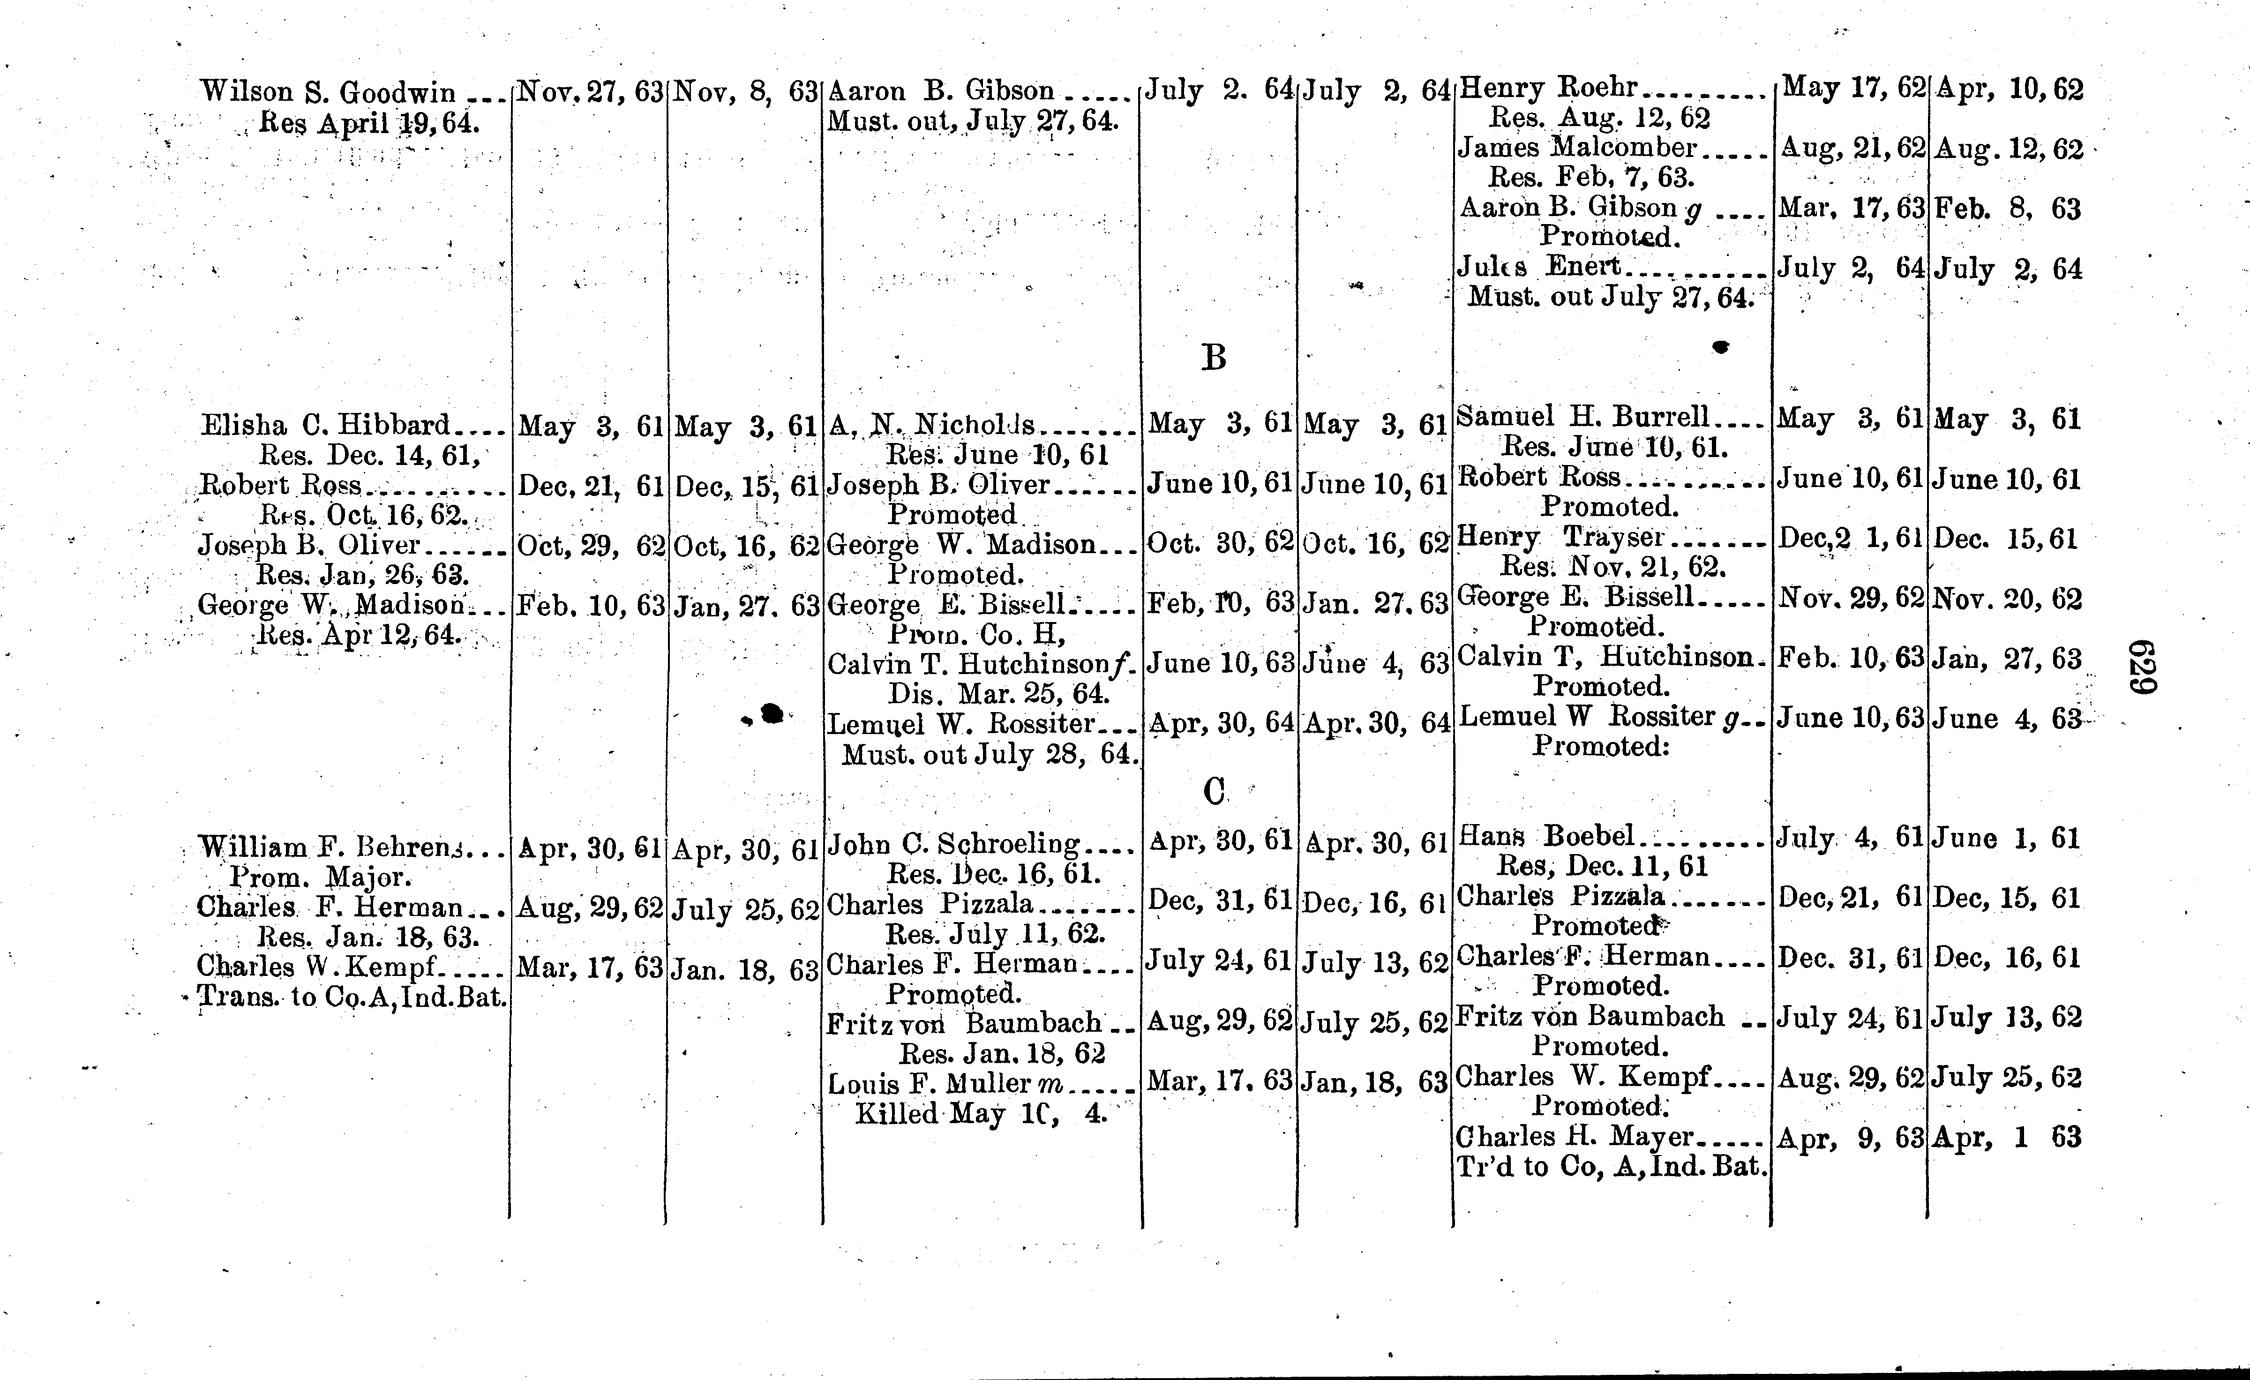 Wilson S. Goodwin ... Nov. 27, 63 Nov, 8, 63 Aaron B. Gibson ..... July 2. 64 July 2, 64 Henry Roehr......... May 17, 62 Apr, 10, 62
Res April 19, 64. Must. out, July 27, 64. Res. Aug. 12, 62
James Malcomber..... Aug, 21, 62 Aug. 12, 62
Res. Feb, 7, 63.
Aaron B. Gibson g .... Mar. 17, 63 Feb. 8, 63
Promoted.
Jules Enert.......... July 2, 64 July 2, 64
Must. out July 27, 64.
B
Elisha C. Hibbard.... May 3, 61 May 3, 61 A. N. Nicholds....... May 3, 61 May 3, 61 Samuel H. Burrell.... May 3, 61 May 3, 61
Res. Dec. 14, 61, Res. June 10, 61 Res. June 10, 61.
Robert Ross.......... Dec, 21, 61 Dec, 15, 61 Joseph B. Oliver...... June 10, 61 June 10, 61 Robert Ross.......... June 10, 61 June 10, 61
Res. Oct. 16, 62. Promoted Promoted.
Joseph B. Oliver...... Oct, 29, 62 Oct, 16, 62 George W. Madison... Oct. 30, 62 Oct. 16, 62 Henry Trayser....... Dec,2 1, 61 Dec. 15, 61
Res. Jan, 26, 63. Promoted. Res. Nov. 21, 62.
George W. Madison... Feb. 10, 63 Jan, 27. 63 George E. Bissell..... Feb, 10, 63 Jan. 27. 63 George E. Bissell..... Nov. 29, 62 Nov. 20, 62
Res. Apr 12, 64. Prom. Co. H, Promoted.
Calvin T. Hutchinson f. June 10, 63 June 4, 63 Calvin T, Hutchinson. Feb. 10, 63 Jan, 27, 63
Dis. Mar. 25, 64. Promoted.
Lemuel W. Rossiter... Apr, 30, 64 Apr. 30, 64 Lemuel W Rossiter g.. June 10, 63 June 4, 63
Must. out July 28, 64. Promoted:
629
C
William F. Behrens... Apr, 30, 61 Apr, 30, 61 John C. Schroeling.... Apr, 30, 61 Apr. 30, 61 Hans Boebel......... July 4, 61 June 1, 61
Prom. Major. Res. Dec. 16, 61. Res, Dec. 11, 61
Charles F. Herman... Aug, 29, 62 July 25, 62 Charles Pizzala....... Dec, 31, 61 Dec, 16, 61 Charles Pizzala....... Dec, 21, 61 Dec, 15, 61
Res. Jan. 18, 63. Res. July 11, 62. Promoted
Charles W. Kempf..... Mar, 17, 63 Jan. 18, 63 Charles F. Herman.... July 24, 61 July 13, 62 Charles F. Herman.... Dec. 31, 61 Dec, 16, 61
Trans. to Co. A, Ind. Bat. Promoted. Promoted.
Fritz von Baumbach .. Aug, 29, 62 July 25, 62 Fritz von Baumbach .. July 24, 61 July 13, 62
Res. Jan. 18, 62 Promoted.
Louis F. Muller m..... Mar, 17. 63 Jan, 18, 63 Charles W. Kempf.... Aug. 29, 62 July 25, 62
Killed May 4. Promoted.
Charles H. Mayer..... Apr, 9, 63 Apr, 1 63
Tr'd to Co, A, Ind. Bat.